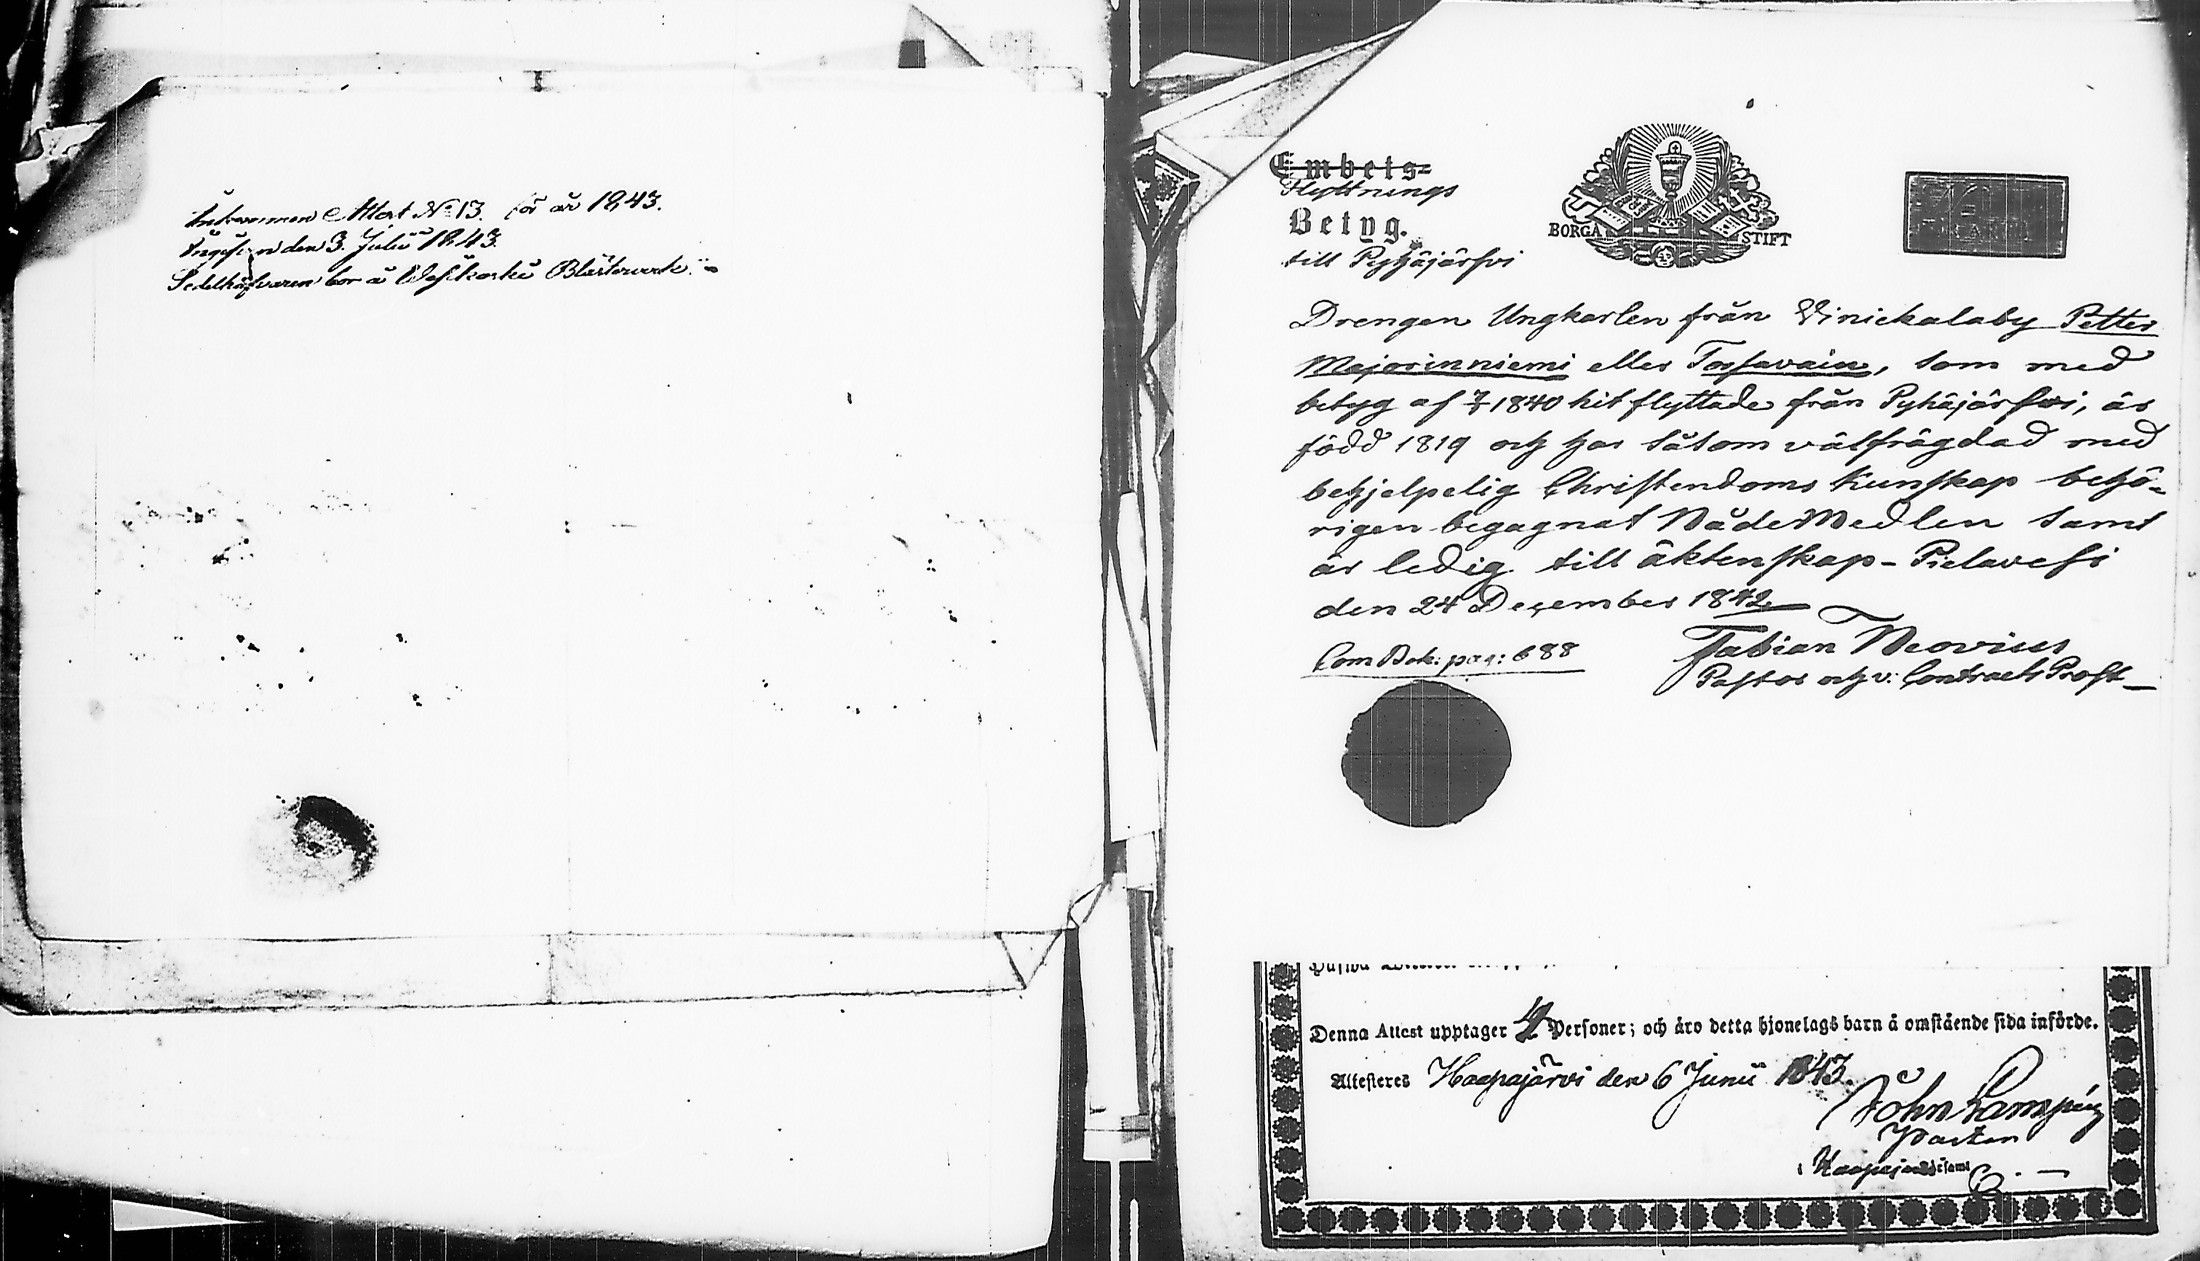 Ankommen Attest No 13. för år 1843.
den 3. Julii 1843.
Sedelhafvaren bor å Blästerverk
Embets-
Flyttnings
Betyg.
till Pyhäjärfvi
BORGÅ STIFT
Drengen Ungkarlen från Winickalaby Petter
Majorinniemi eller Tossavain, som med
betyg af 1840 hit flyttade från Pyhäjärfvi, är
född 1819 och har såsom välfrägdad med
behjelpelig Christendoms kunskap behö-
rigen begagnat NådeMedlen samt
är ledig till äktenskap - Pielavesi
den 24 December 1842
Fabian Neovius
Com Bok: pag: 688
Pastor och v: Contracts Prost
Denna Attest upptager 4 Personer; och äro detta hjonelags barn å omstående sida införde.
Attesteres Haapajärvi den 6 Junii 1843.
Joh Lampén
Pastor
i Haapajärvi